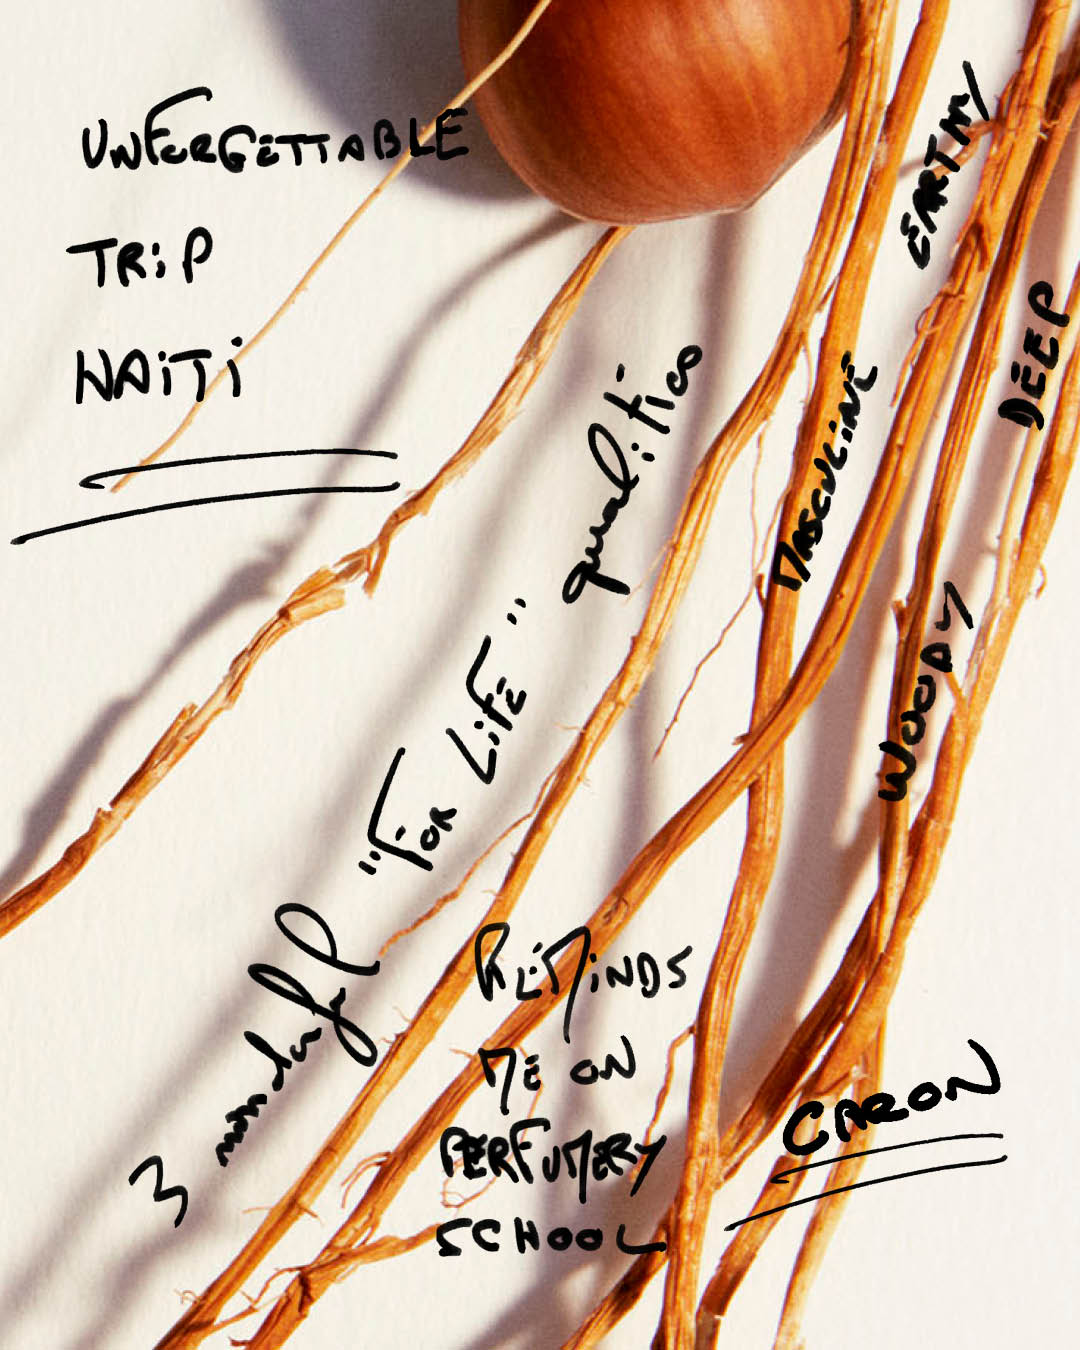 UNFORGETTABLE
TRiP
HAiTi
3 wonderful "FOR LiFE" qualities
MASCULiNE
EARTHY
DEEP
WOODY
REMiNDS
ME ON
PERFUMERY
SCHOOL
CARON